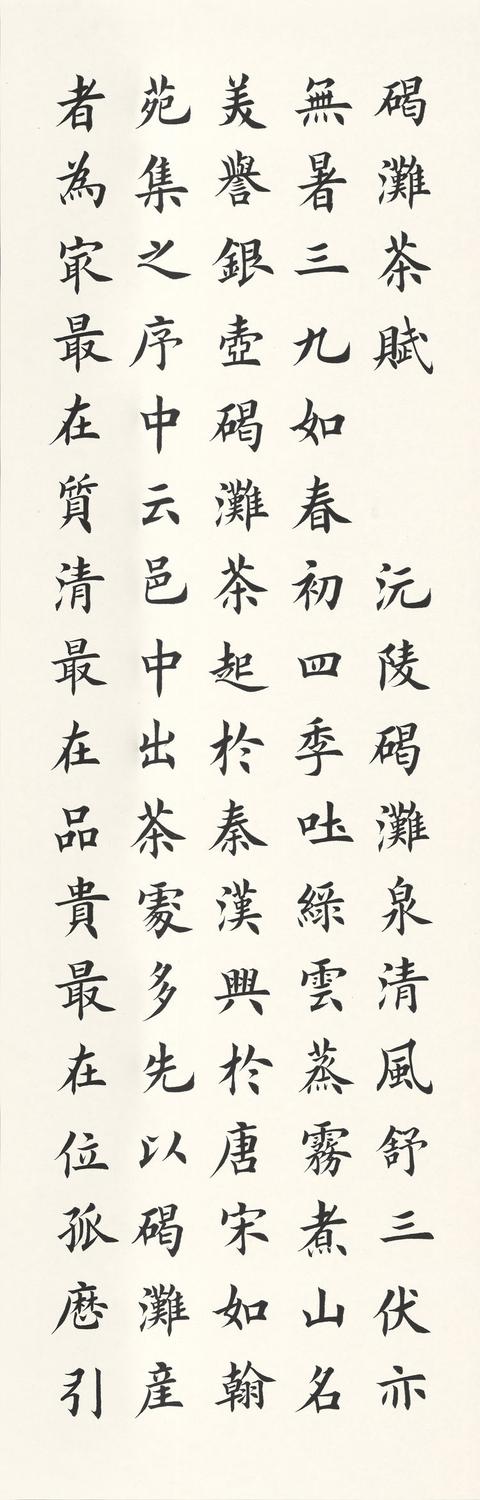 碣灘茶賦　沅陵碣灘泉清風舒三伏亦
無暑三九如春初四季吐綠雲蒸霧煮山名
美譽銀壺碣灘茶起於秦漢興於唐宋如翰
苑集之序中云邑中出茶處多先以碣灘産
者為冣最在質清最在品貴最在位孤歷引